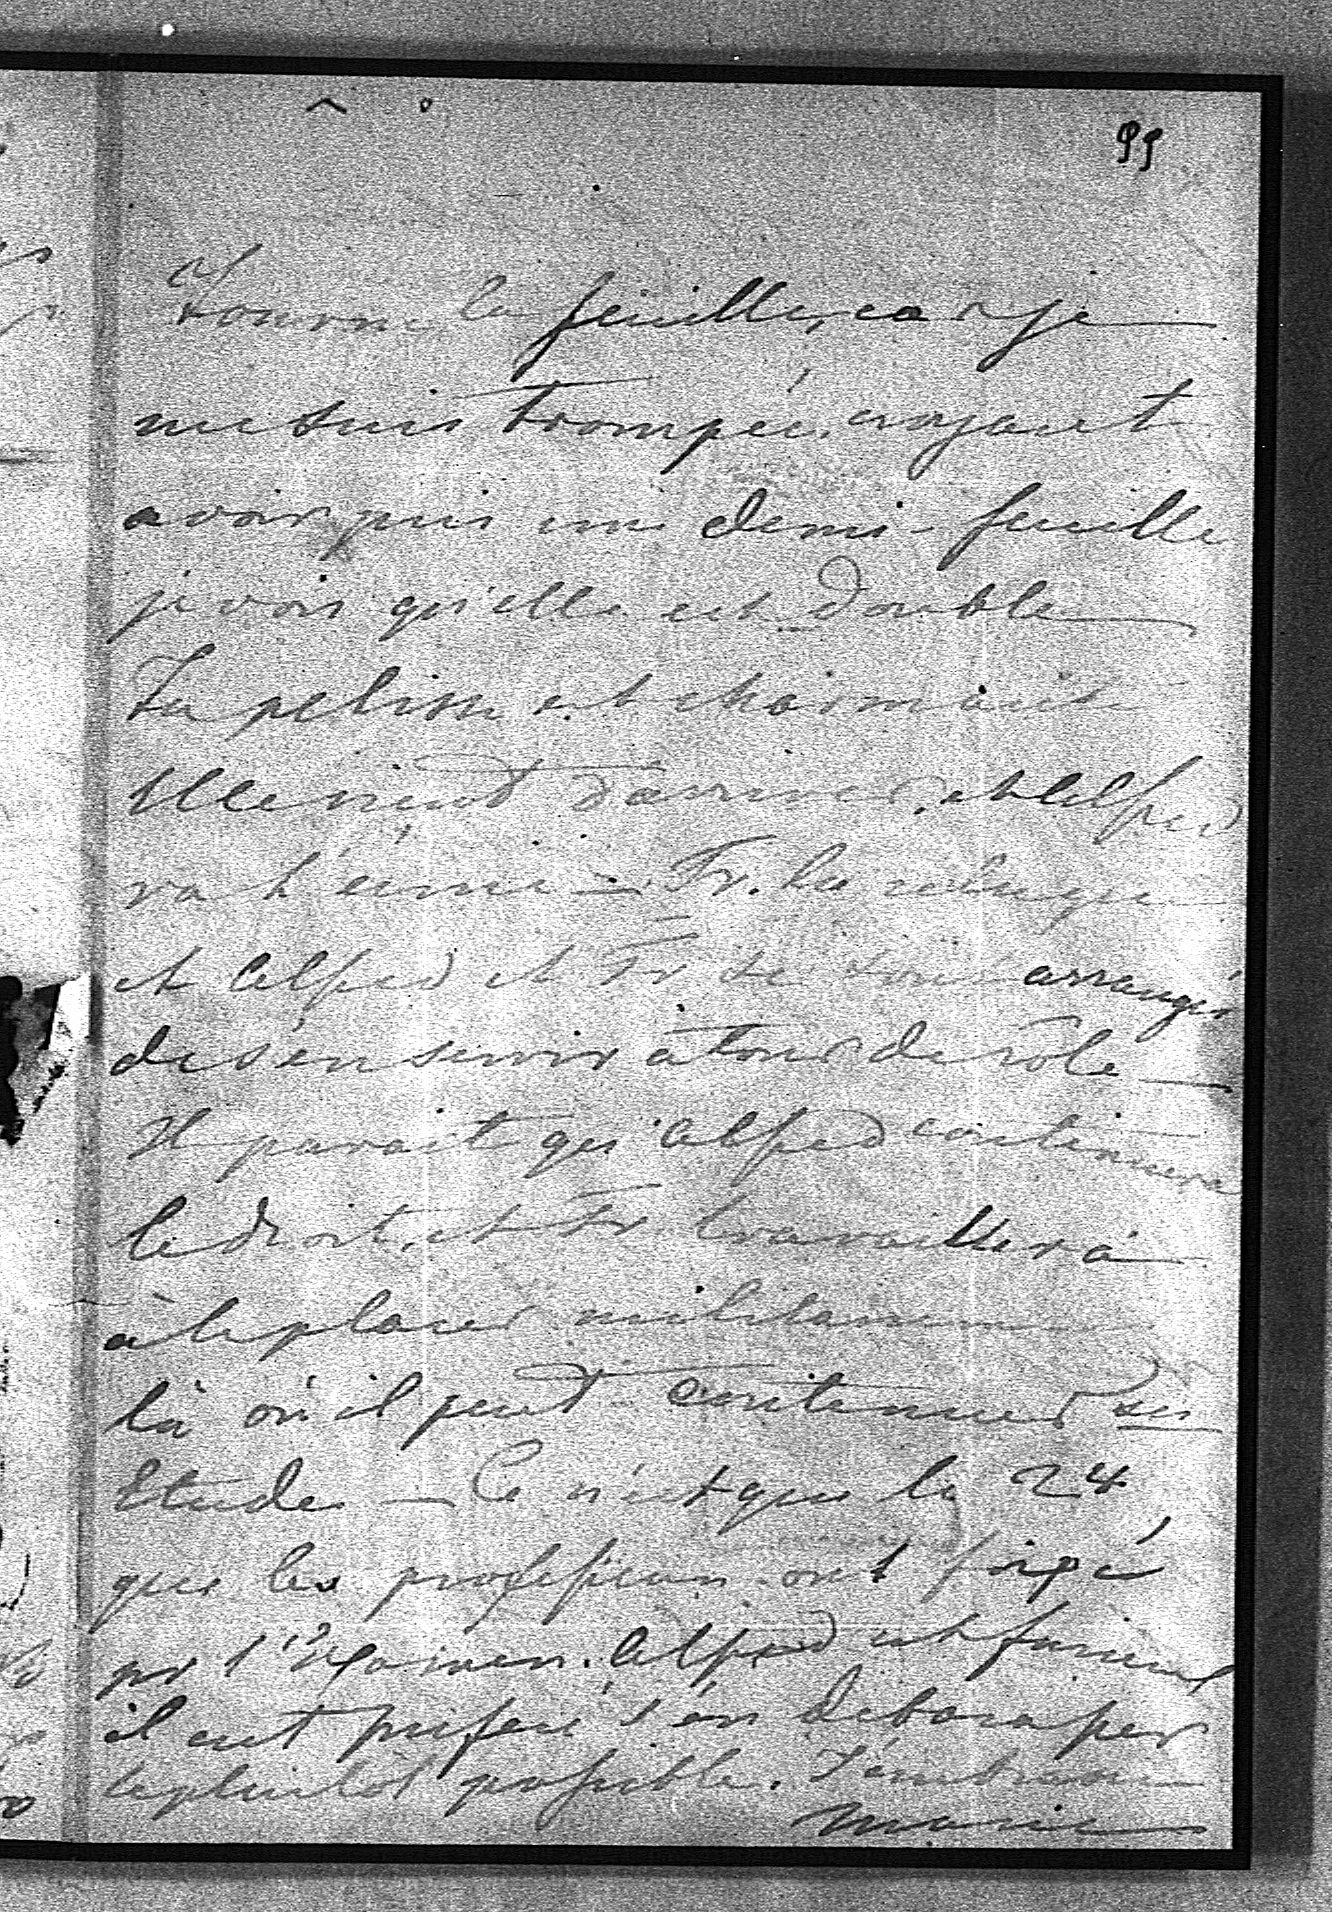 99
Tourne la feuille, car je
me suis trompée, croyant
avoir pris une demi-feuille
je vois qu'elle est double
Ta pelisse est charmante
Elle vient d'arriver, et Alfred
va t'écrire — Fr. la
et Alfred et Fr. se sont arrangés
de s'en servir à tour de rôle —
Il parait qu'Alfred continuera
le droit, et Fr. travaillera
à le placer militairement
là où il peut continuer ses
Etudes — Ce n'est que le 24
que les professeurs ont fixé
pr l'Examen. Alfred est furieux
il eut preferé s'en debarasser
le plus tôt possible. T'embrasse
Marie